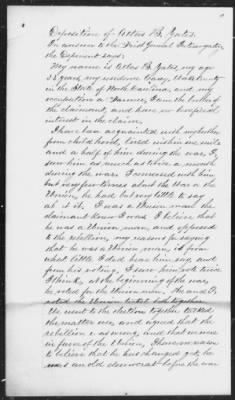 Deposition of Atlas B. Yates.
In answer to the First General Interrogatory,
the Deponent says:
My name is Atlas B. Yates, my age
35 years, my residence Cary, Wake County
in the State of North Carolina, and my
occupation a Farmer; I am the brother of
the claimant, and have no beneficial
interest in the claim.
I have been acquainted with my brother
from childhood, lived within one mile
and a half of him during the war, I
saw him as much as twice a month
during the war. I conversed with him
but very few times about the War or the
Union, he had but very little to say
at it. I was a Union man the
claimant knew I was. I believe that
he was a Union man, and opposed
to the rebellion, my reasons for saying
that he was a Union man, is from
what little I did hear him say, and
from his voting. I saw him vote twice
I think, at the beginning of the war,
he voted for the Union men. He and I
voted the Union ticket both together.
We went to the election together talked
the matter over, and agreed that the
rebellion was wrong, and that we were
in favor of the Union, I have no reason
to believe that he has changed yet, he
was an old democrat before the war